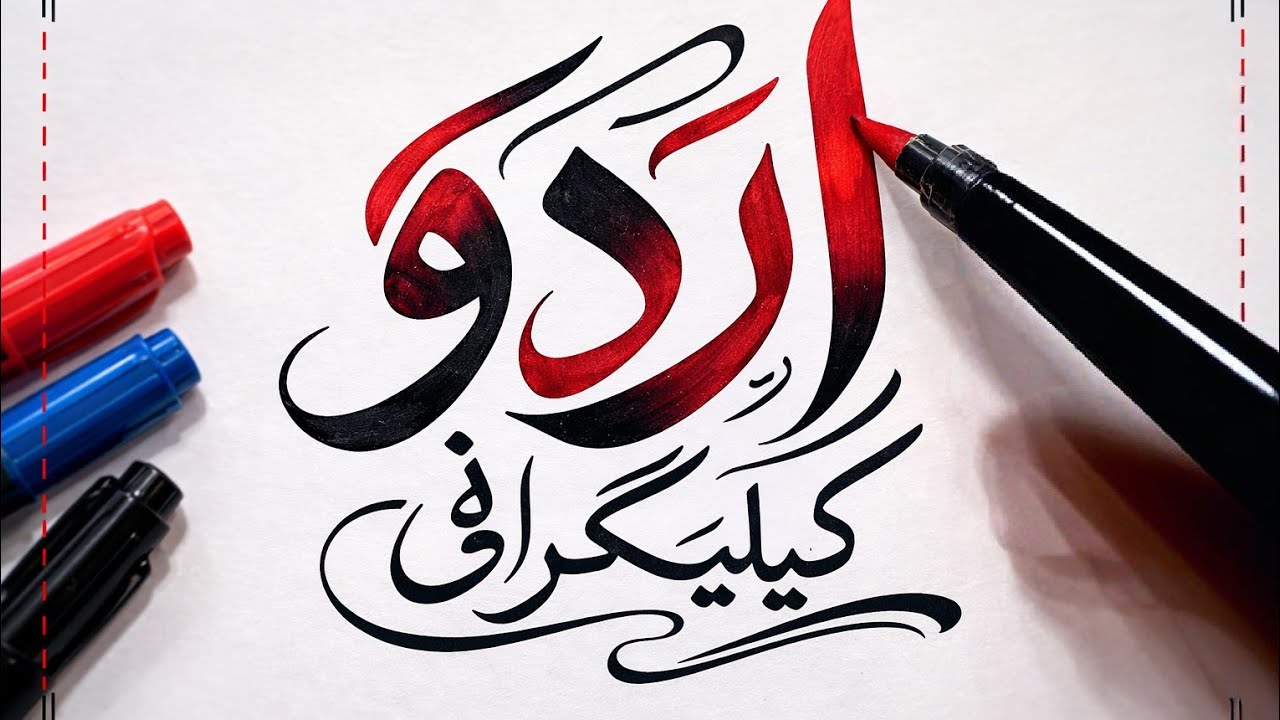 اردو
کیلیگرافی